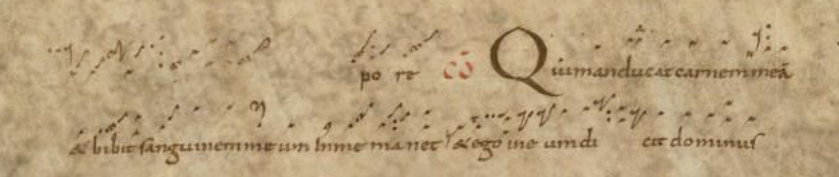 po re cō Qui manducat carnem meā
& bibit sanguinem meum in me manet & ego in e um di cit dominus